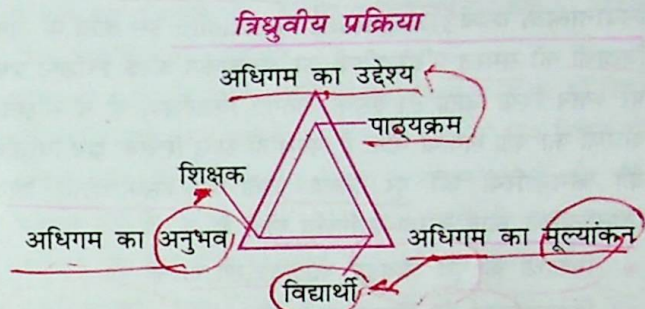 त्रिध्रुवीय प्रक्रिया
अधिगम का उद्देश्य
पाठ्यक्रम
शिक्षक
अधिगम का अनुभव
अधिगम का मूल्यांकन
विद्यार्थी